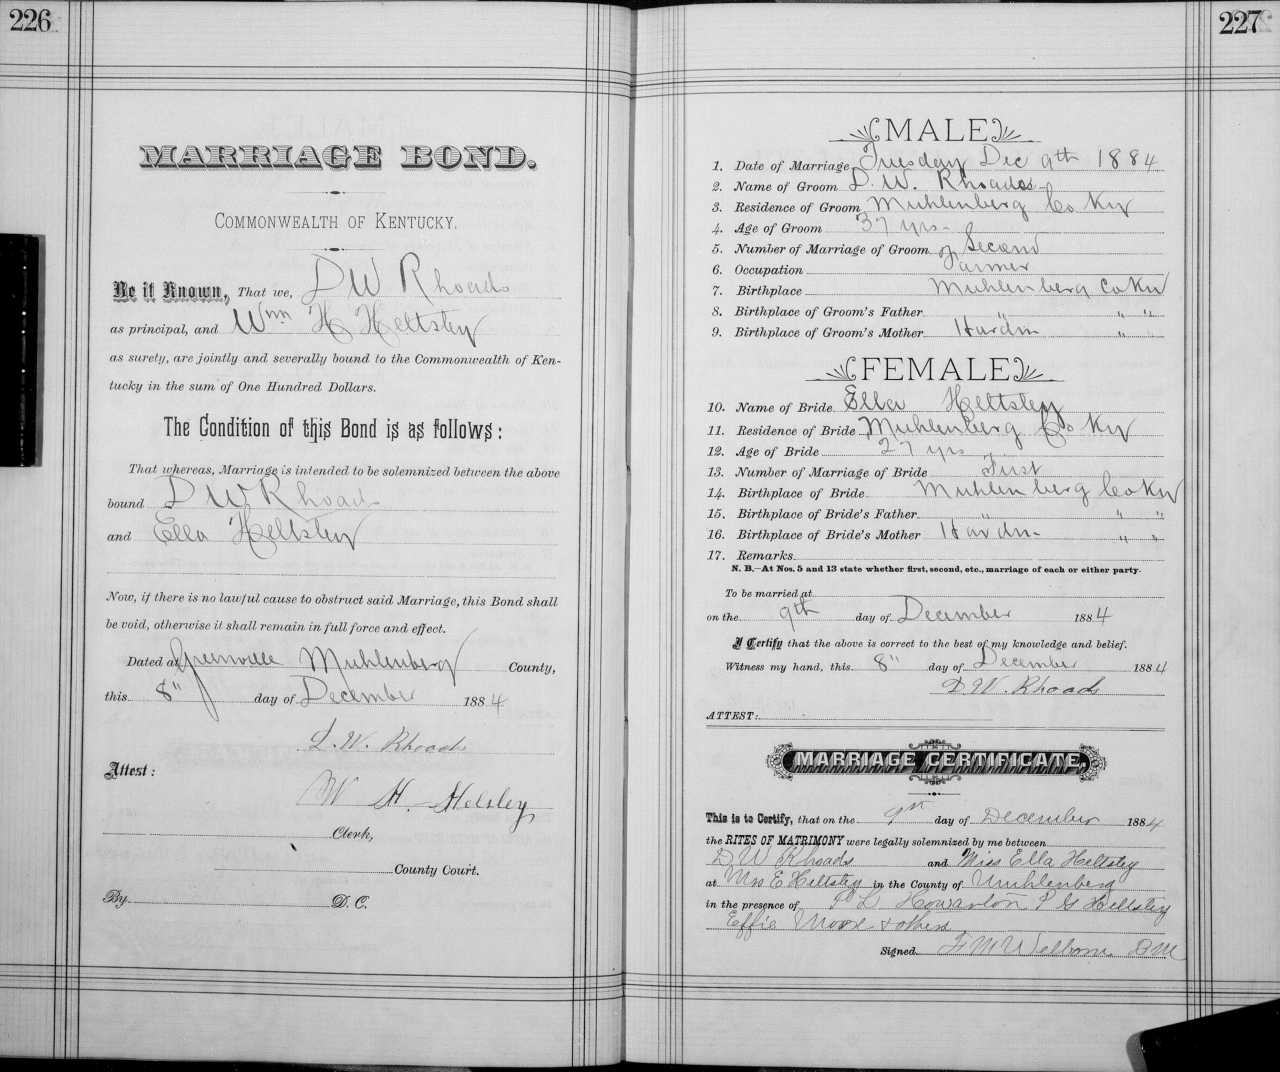 226
MARRIAGE BOND.
COMMONWEALTH OF KENTUCKY.
Be it Known, That we, D W Rhoads
as principal, and Wm H Heltsley
as surety, are jointly and severally bound to the Commonwealth of Ken-
tucky in the sum of One Hundred Dollars.
The Condition of this Bond is as follows:
That whereas, Marriage is intended to be solemnized between the above
bound D W Rhoads
and Ella Heltsley
Now, if there is no lawful cause to obstruct said Marriage, this Bond shall
be void, otherwise it shall remain in full force and effect.
Dated at Greenville Muhlenberg County,
this 8" day of December 1884
D. W. Rhoads
Attest:
W H Helsley
Clerk,
County Court.
By D. C.
227
MALE
1. Date of Marriage Tuesday Dec 9th 1884
2. Name of Groom D. W. Rhoads
3. Residence of Groom Muhlenberg Co Ky
4. Age of Groom 37 yrs-
5. Number of Marriage of Groom Second
6. Occupation Farmer
7. Birthplace Muhlenberg Co Ky
8. Birthplace of Groom's Father " " "
9. Birthplace of Groom's Mother Hardin " "
FEMALE
10. Name of Bride Ella Heltsley
11. Residence of Bride Muhlenberg Co Ky
12. Age of Bride 27 yrs
13. Number of Marriage of Bride First
14. Birthplace of Bride Muhlenberg Co Ky
15. Birthplace of Bride's Father " " "
16. Birthplace of Bride's Mother Hardin- " "
17. Remarks
N. B.—At Nos. 5 and 13 state whether first, second, etc., marriage of each or either party.
To be married at
on the 9th day of December 1884
I Certify that the above is correct to the best of my knowledge and belief.
Witness my hand, this 8" day of December 1884
D. W. Rhoads
ATTEST:
MARRIAGE CERTIFICATE.
This is to Certify, that on the 9th day of December 1884
the RITES OF MATRIMONY were legally solemnized by me between
D W Rhoads and Miss Ella Heltsley
at Mrs E Heltsley in the County of Muhlenberg
in the presence of L P G Heltsley
Effie Moore & others
Signed F M Welborn